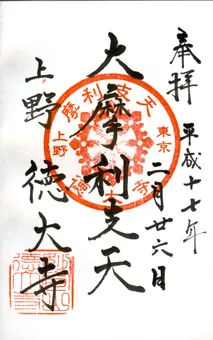 奉拝
平成十七年
二月廿六日
大摩利支天
上野
徳大寺
摩利支天
東京
上野